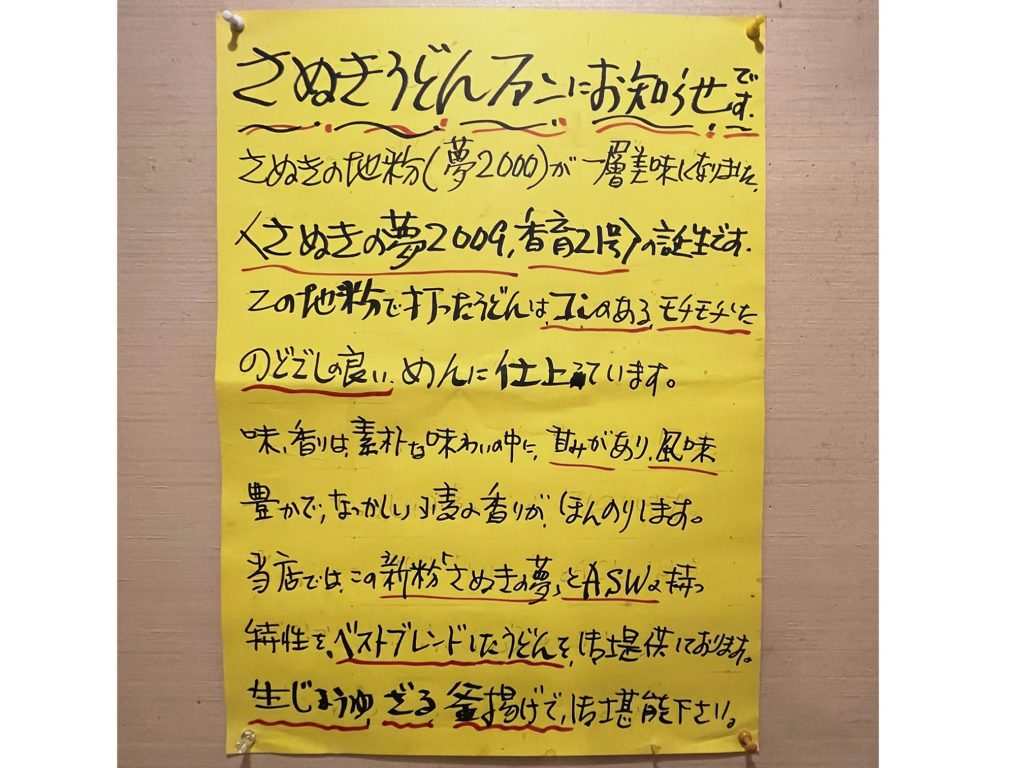 さぬきうどんファンにお知らせです。
さぬきの地粉(夢2000)が一層美味しくなりました。
〈さぬきの夢2009,香育21号〉の誕生です。
この地粉で打ったうどんは、コシのある、モチモチした
のどごしの良い、めんに仕上っています。
味、香りは、素朴な味わいの中に、甘みがあり、風味
豊かで、なつかしい小麦の香りが、ほんのりします。
当店では、この新粉「さぬきの夢」とASWの持つ
特性を、ベストブレンドしたうどんを、提供しております。
生じょうゆ ざる 釜揚げで、堪能下さい。